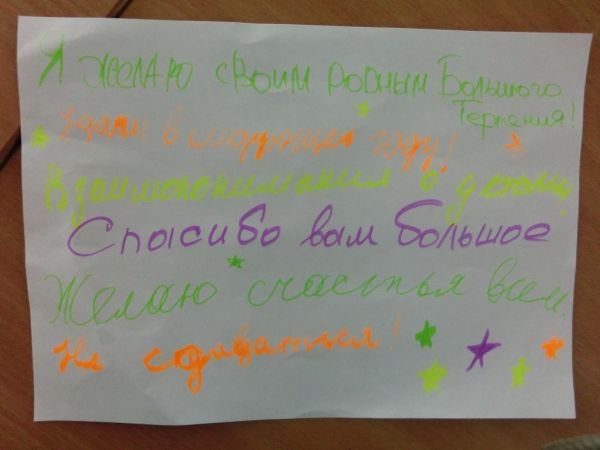 Я ЖЕЛАЮ СВОИМ РОДНЫМ Большого
Терпения!
Удачи в следующем году!
Взаимопонимания с детьми,
Спасибо вам большое
Желаю счастья всем
Не сдаваться!